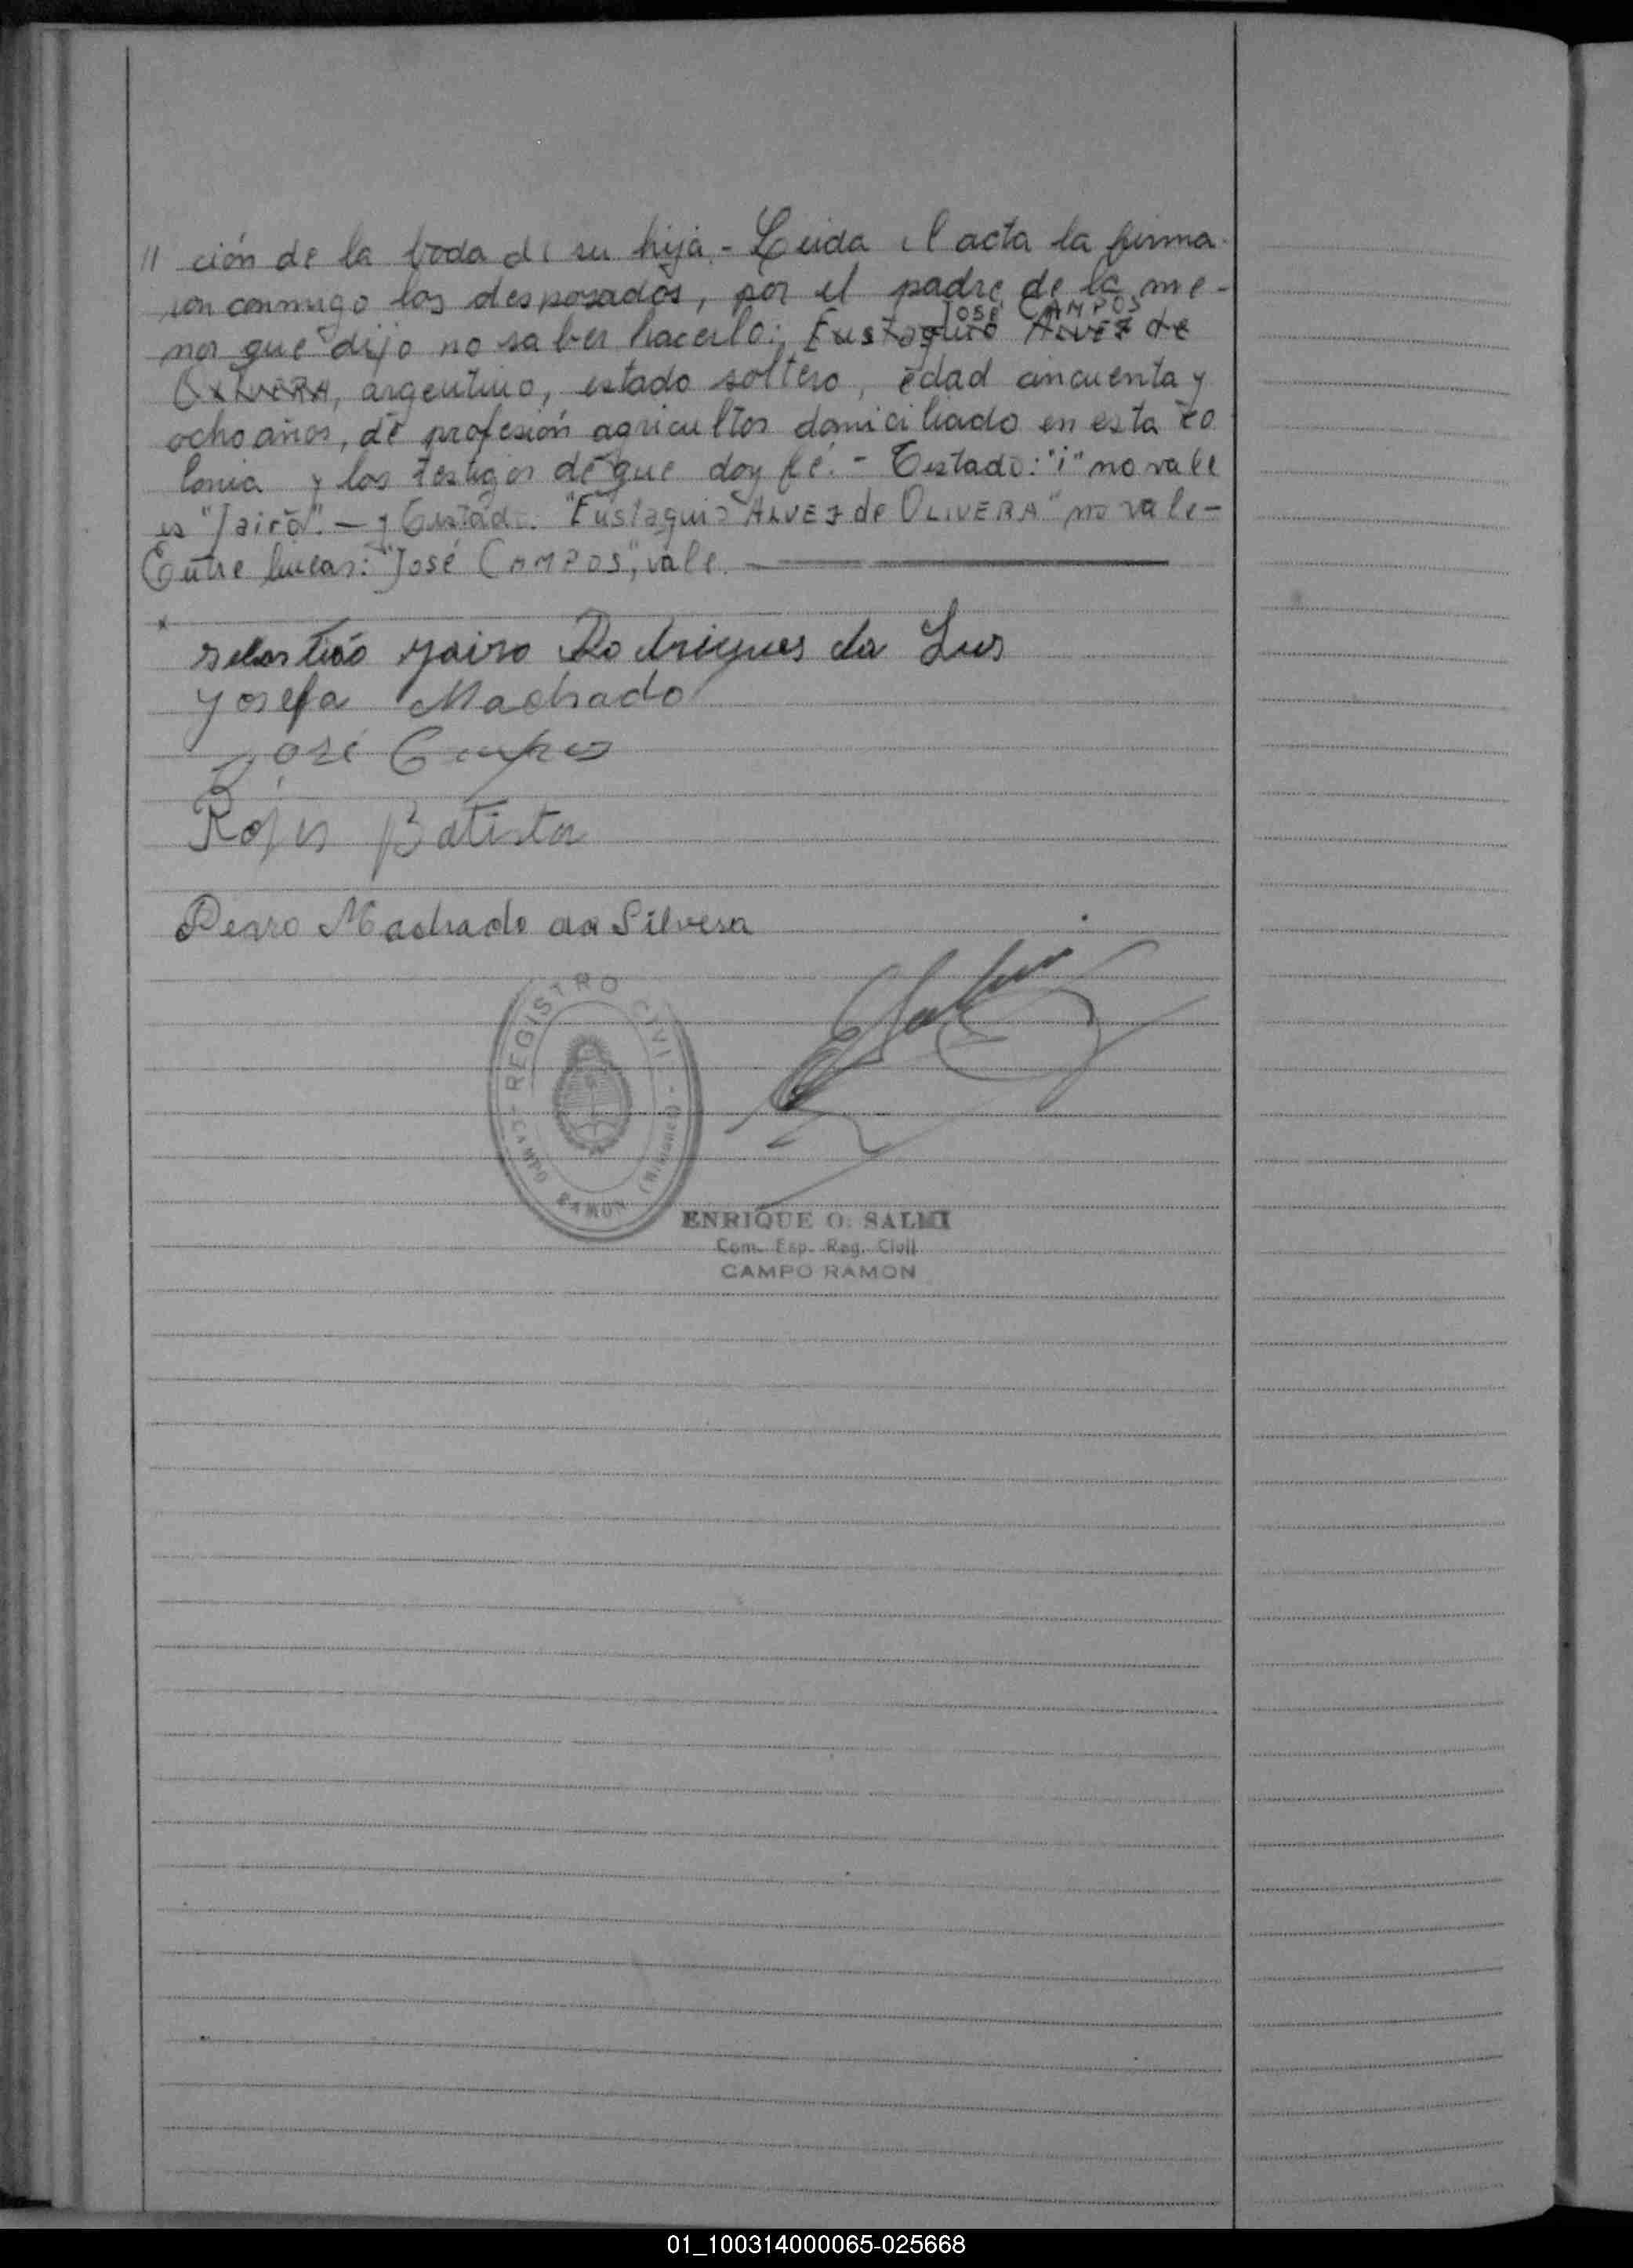 // ción de la boda de su hija.- Leida el acta la firma-
ron conmigo los desposados, por el padre de la me-
JOSÉ CAMPOS
nor que dijo no saber hacerlo: Eustaquio ALVEZ de
OLIVERA, argentino, estado soltero, edad cincuenta y
ocho años, de profesión agricultor domiciliado en esta co
lonia y los testigos de que doy fé.- Testado: "i" no vale
es "Jairo".- y Testado: "Eustaquio ALVEZ de OLIVERA" no vale-
Entre lineas: "José CAMPOS", vale.
Sebastião Yairo Rodrigues da Lus
Yosefa Machado
José Campos
Batista
Pedro Machado da Silvera
REGISTRO CIVIL
CAMPO RAMON (Misiones)
ENRIQUE O. SALMI
Com. Esp. Reg. Civil
CAMPO RAMON
01_100314000065-025668